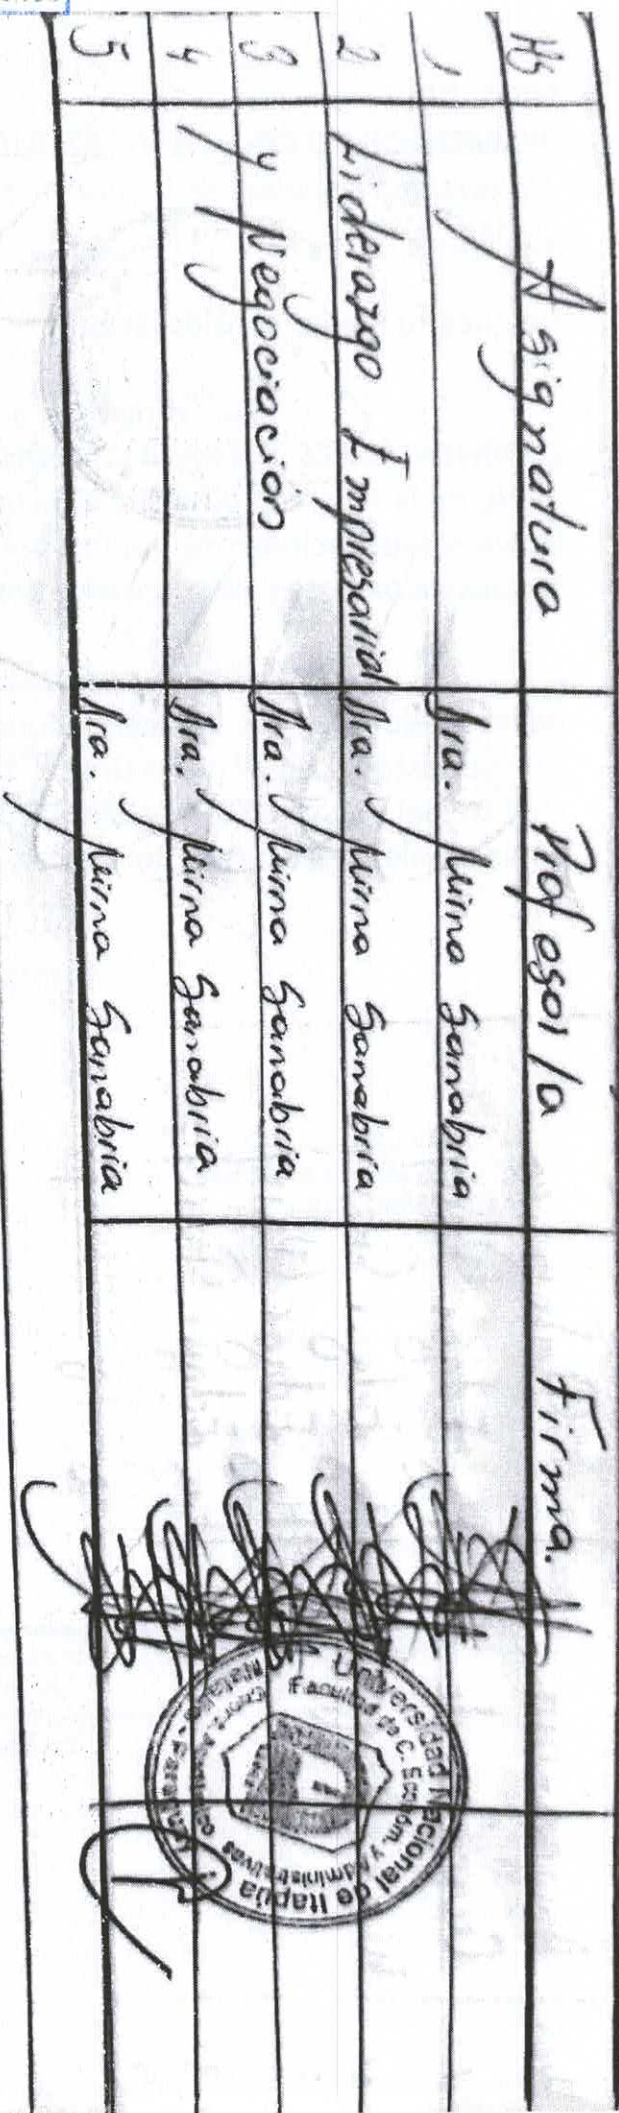 Hs Asignatura Profesor/a Firma.
1 Dra. Mirna Sanabria
2 Liderazgo Empresarial Dra. Mirna Sanabria
3 y Negociación Dra. Mirna Sanabria
4 Dra. Mirna Sanabria
5 Dra. Mirna Sanabria
Universidad Nacional de Itapúa
Facultad de C. Económ. y Administrativas
Natalio - Paraguay